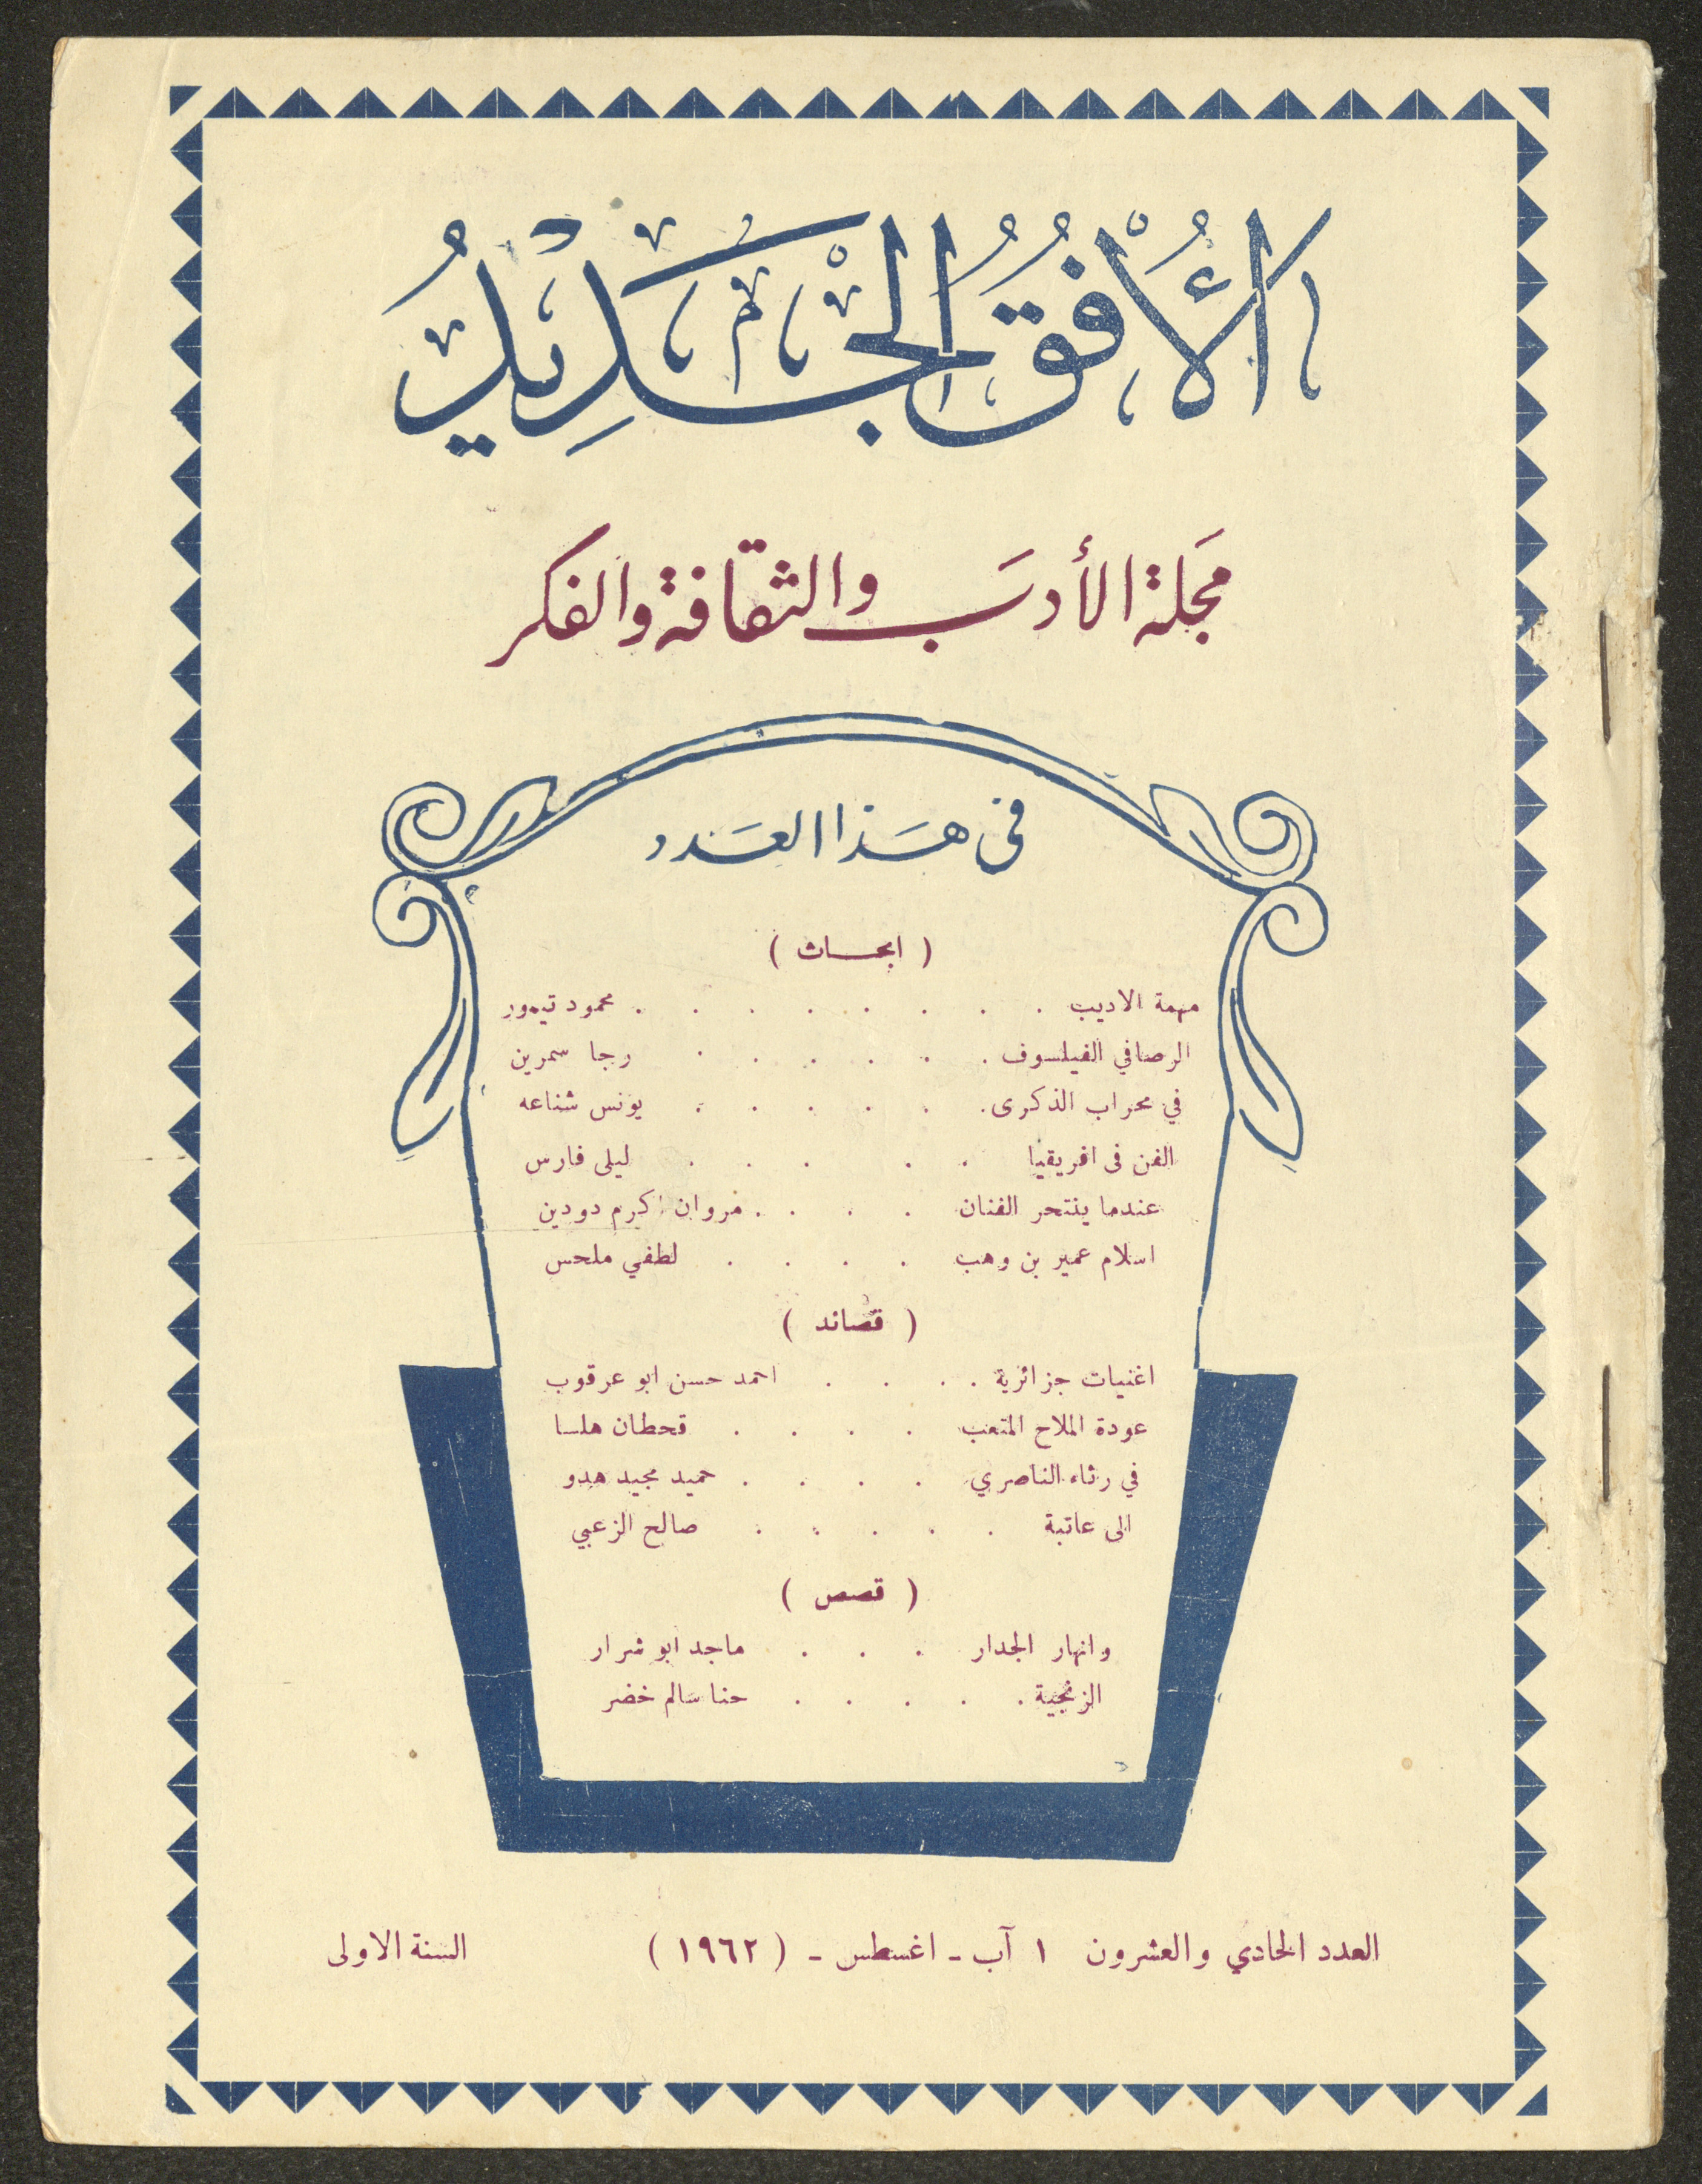 الأُفُقُ الجَدِيدُ
مَجَلة الأدَب والثقافة والفكر
في هَذا العَدد
( ابحـاث )
مهمة الاديب . . . . . . . . محمود تيمور
الرصافي الفيلسوف . . . . . . رجا سمرين
في محراب الذكرى . . . . . . يونس شناعه
الفن في افريقيا . . . . . ليلى فارس
عندما ينتحر الفنان . . . . مروان اكرم دودين
اسلام عمير بن وهب . . . . لطفي ملحس
( قصائد )
اغنيات جزائرية . . . . احمد حسن ابو عرقوب
عودة الملاح المتعب . . . . قحطان هلسا
في رثاء الناصري . . . . حميد مجيد هدو
الى عاتبة . . . . . صالح الزعبي
( قصص )
وانهار الجدار . . . ماجد ابو شرار
الزنجية . . . . . حنا سالم خضر
العدد الحادي والعشرون ١ آب - اغسطس - ( ١٩٦٢ ) السنة الاولى